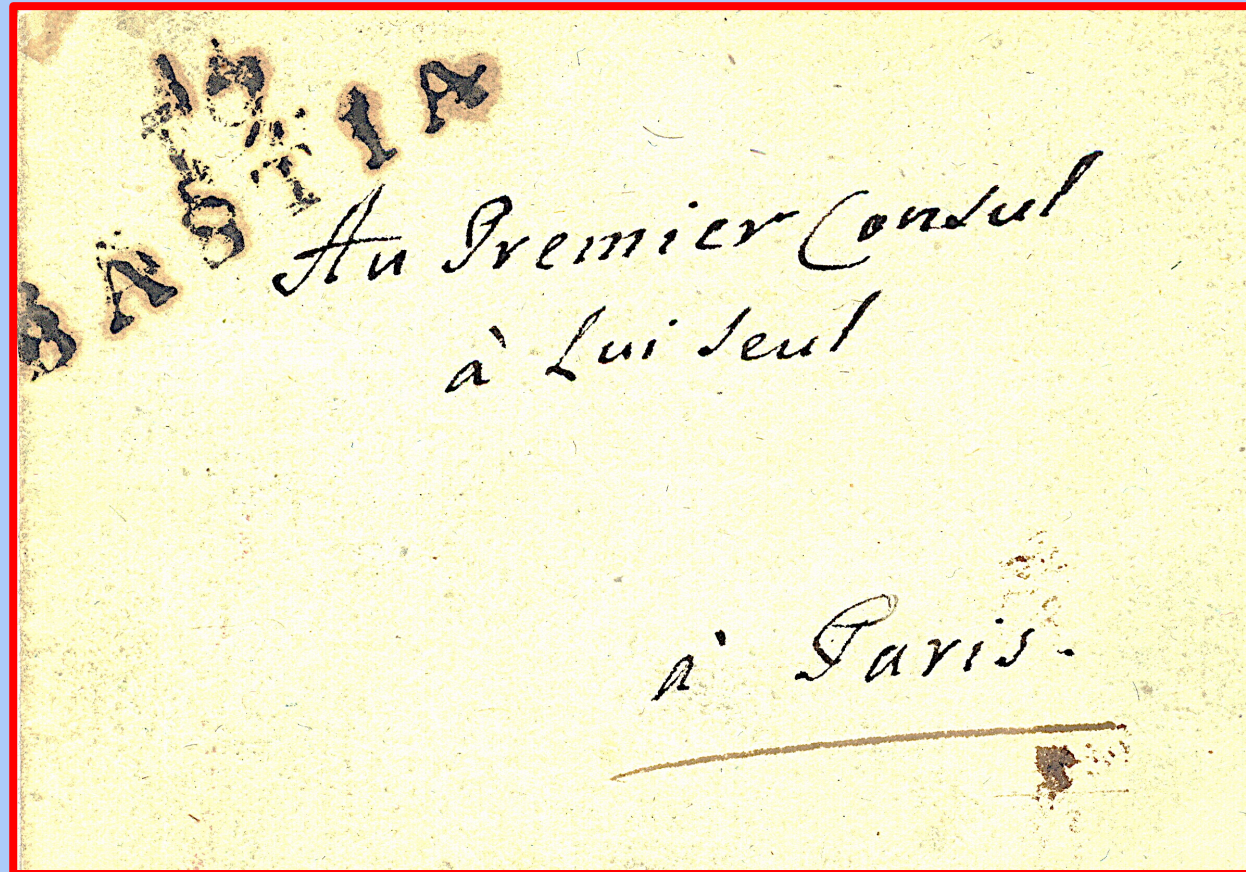 BASTIA
Au Premier Consul
à Lui seul
à Paris.